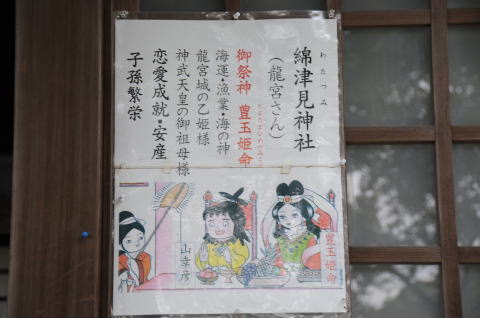 わたつみ
綿津見神社
(龍宮さん)
御祭神 豊玉姫命
とよたまひめのみこと
海運・漁業・海の神
龍宮城の乙姫様
神武天皇の御祖母様
恋愛成就・安産
子孫繁栄
豊玉姫命
山幸彦